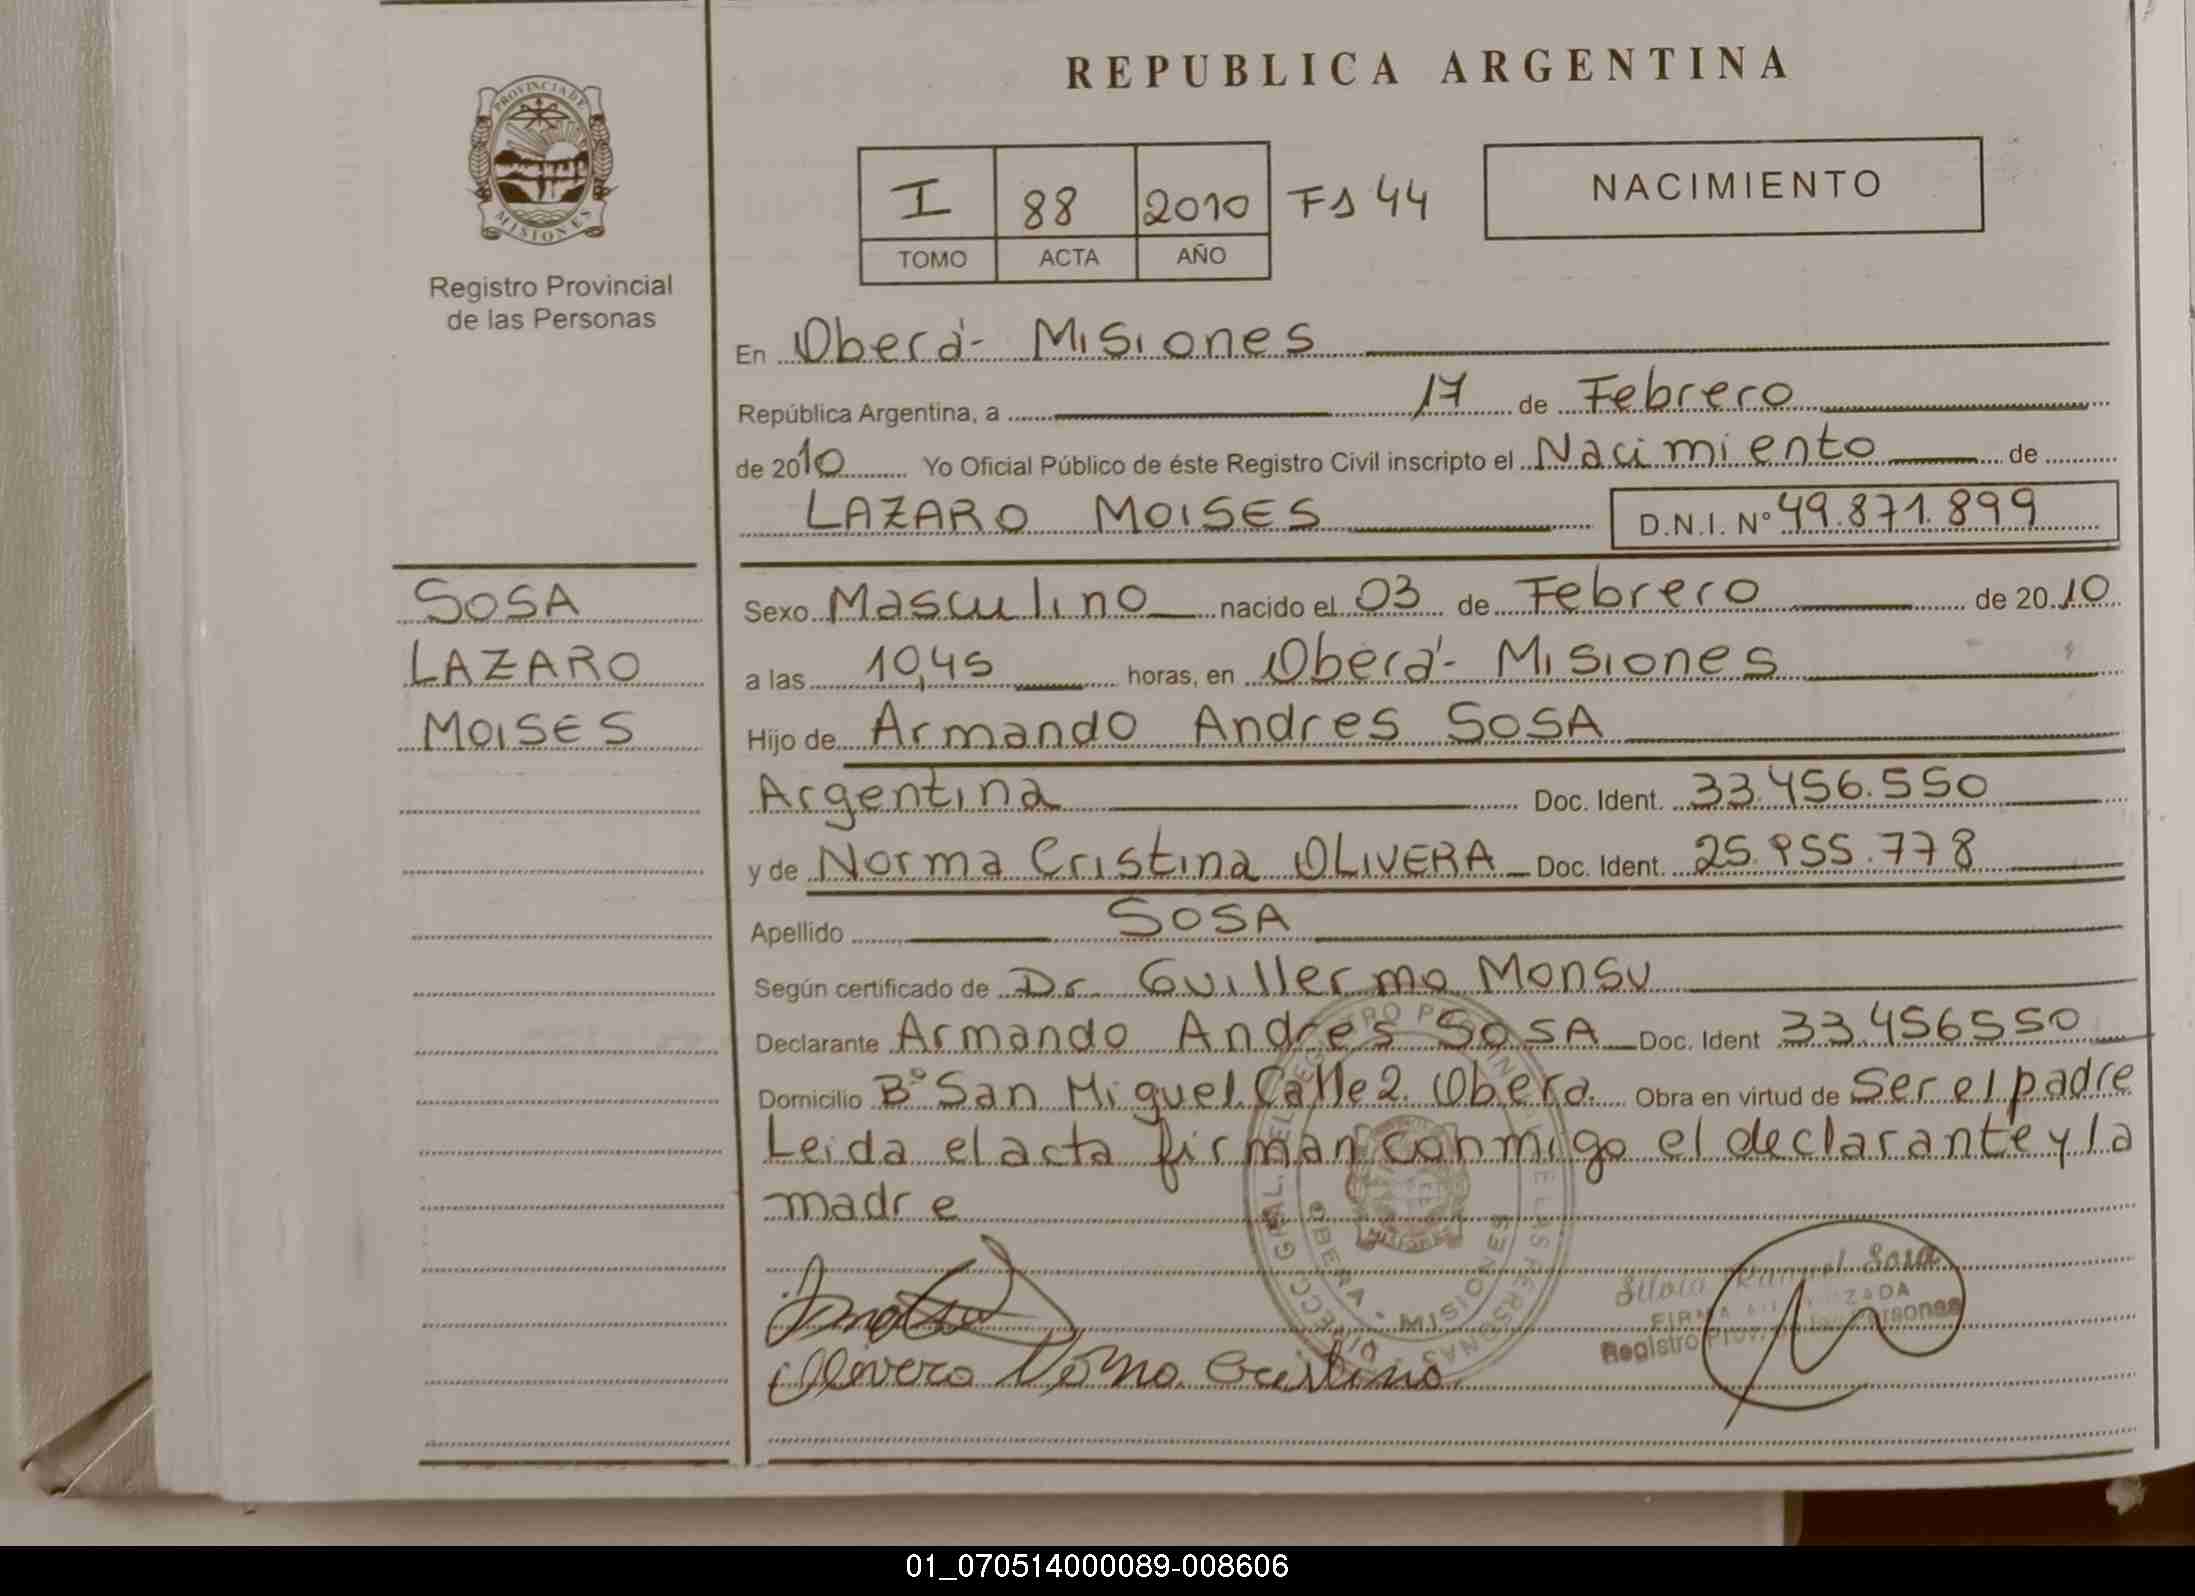 REPUBLICA ARGENTINA
PROVINCIA DE
MISIONES
Registro Provincial
de las Personas
I 88 2010 Fs 44
TOMO ACTA AÑO
NACIMIENTO
En Oberá- Misiones
República Argentina, a 17 de Febrero
de 2010 Yo Oficial Público de éste Registro Civil inscripto el Nacimiento de
LAZARO MOISES D.N.I. Nº 49.871.899
SOSA
LAZARO
MOISES
Sexo Masculino nacido el 03 de Febrero de 20 10
a las 10,45 horas, en Oberá- Misiones
Hijo de Armando Andres SOSA
Argentina Doc. Ident. 33.456.550
y de Norma Cristina OLIVERA Doc. Ident. 25.955.778
Apellido SOSA
Según certificado de Dr. Guillermo Monsu
Declarante Armando Andres SOSA Doc. Ident 33.456550
Domicilio Bº San Miguel Calle 2. Oberá. Obra en virtud de Ser el padre
Leida el acta firman conmigo el declarante y la
madre
OBERA • MISIONES
Silvia Raquel Sosa
FIRMA AUTORIZADA
Registro Prov. de las Personas
Olivera Norma Cristina
01_070514000089-008606